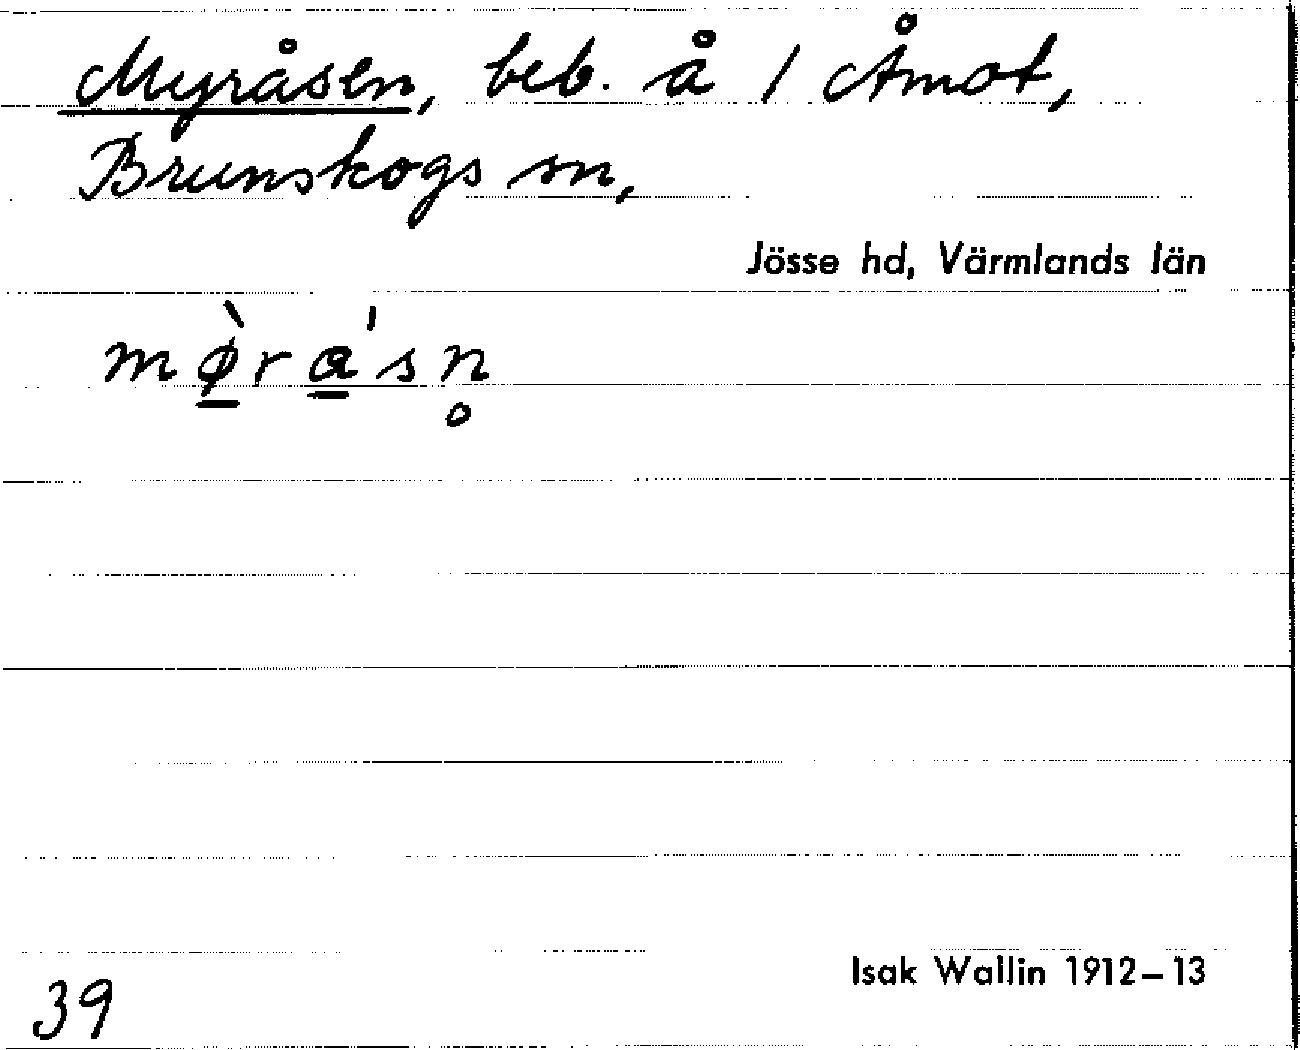 Myråsen, beb. å 1 Åmot,
Brunskogs sn,
Jösse hd, Värmlands län
mø̱̀ra̱'sn̥
Isak Wallin 1912–13
39